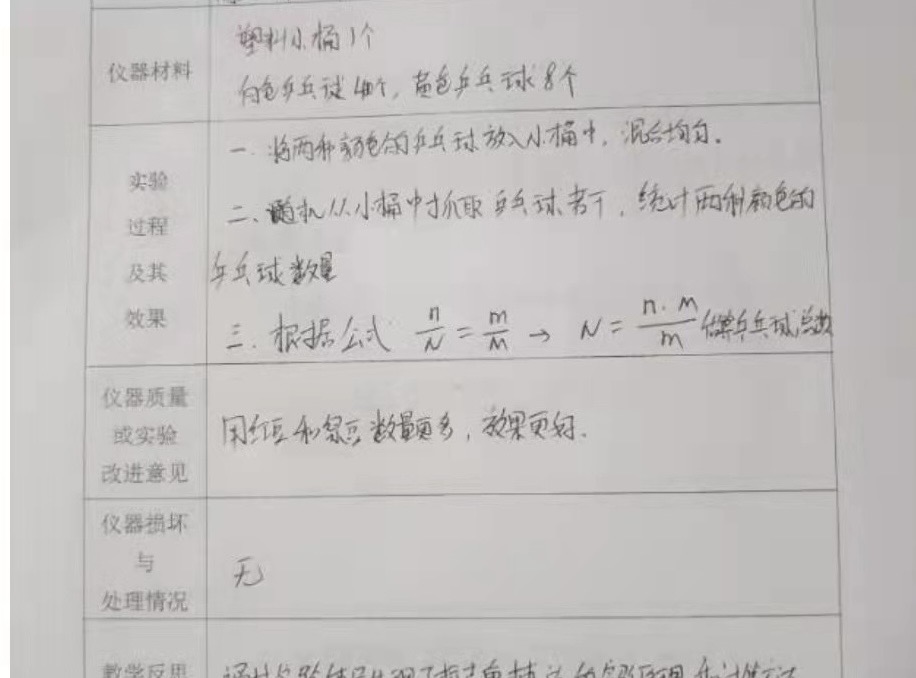 仪器材料
塑料小桶1个
白色乒乓球40个，黄色乒乓球8个
实验
过程
及其
效果
一.将两种颜色的乒乓球放入小桶中，混合均匀。
二、随机从小桶中抓取乒乓球若干，统计两种颜色的
乒乓球数量
三.根据公式 n/N = m/M → N = n·M/m 估算乒乓球总数
仪器质量
或实验
改进意见
用红豆和绿豆数量更多，效果更好.
仪器损坏
与
处理情况
无
教学反思
通过实验